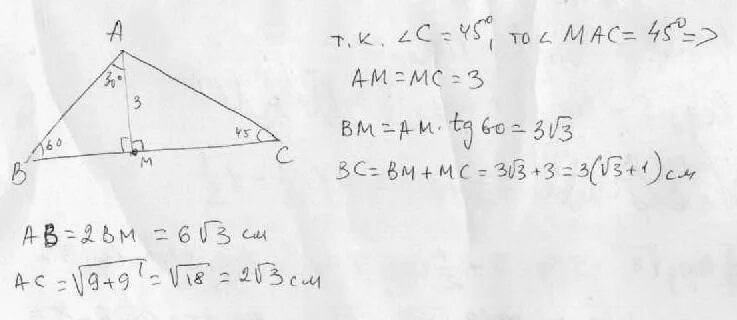 A
30°
3
B
60
M
45
C
т.к. ∠C = 45°, то ∠MAC = 45° =>
AM = MC = 3
BM = AM · tg 60 = 3√3
BC = BM + MC = 3√3 + 3 = 3(√3 + 1) см
AB = 2BM = 6√3 см
AC = √(9+9) = √18 = 2√3 см